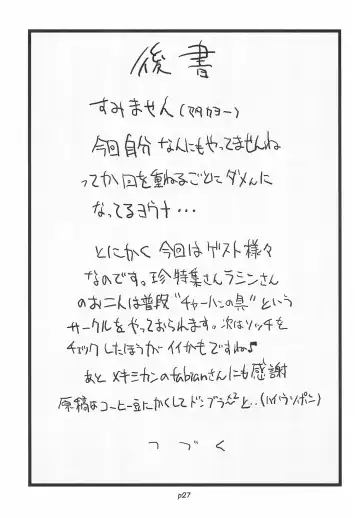 後書
すみません(マタカヨー)
今回自分なんにもやってませんね
ってか回を重ねるごとにダメんに
なってるヨウナ・・・
とにかく今回はゲスト様々
なのです。珍特集さんラミンさん
のお二人は普段“チャーハンの具”という
サークルをやっておられます。次はソッチを
チェックしたほうがイイかもですね♪
あとメキミカンのfabianさんにも感謝
原稿はコーヒー豆にかくしてドンブラ
つづく
p27